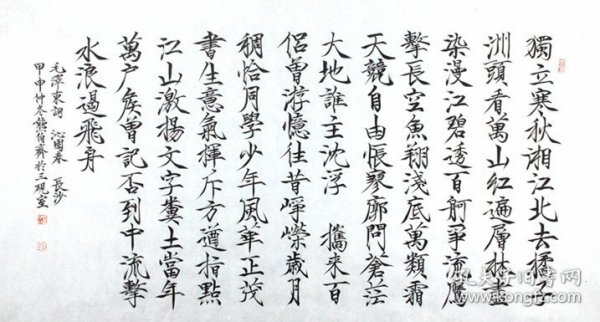 獨立寒秋湘江北去橘子
洲頭看萬山紅遍層林盡
染漫江碧透百舸爭流鷹
擊長空魚翔淺底萬類霜
天競自由悵寥廓問蒼茫
大地誰主沈浮 攜來百
侶曾游憶往昔崢嶸歲月
稠恰同學少年風華正茂
書生意氣揮斥方遒指點
江山激揚文字糞土當年
萬户矦曾記否到中流擊
水浪遏飛舟
毛澤東詞 沁園春 長沙
甲申仲冬熊伯齊於三硯室
孔夫子旧书网
www.kongfz.com